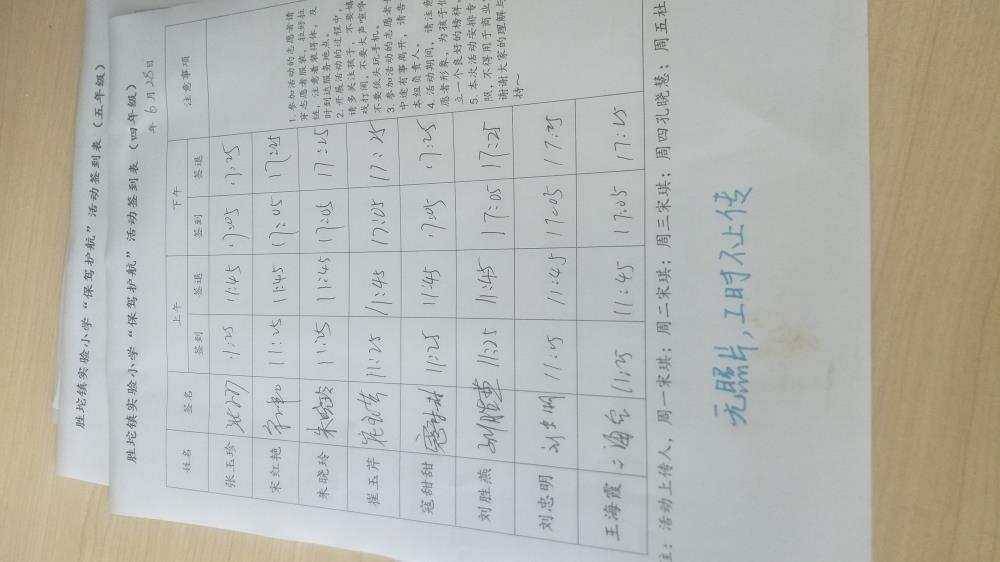 胜坨镇实验小学“保驾护航”活动签到表（五年级）
胜坨镇实验小学“保驾护航”活动签到表（四年级）
年 6月28日
姓名 签名 上午 下午 注意事项
签到 签退 签到 签退
张玉珍 11:25 11:45 17:05 17:25
宋红艳 11:25 11:45 17:05 17:25
朱晓玲 朱晓玲 11:25 11:45 17:05 17:25
崔玉芹 崔玉芹 11:25 11:45 17:05 17:25
寇甜甜 11:25 11:45 17:05 17:25
刘胜燕 刘胜燕 11:25 11:45 17:05 17:25
刘忠明 刘忠明 11:25 11:45 17:05 17:25
王海霞 王海霞 11:25 11:45 17:05 17:25
1. 参加活动的志愿者请
穿志愿者服装，拉好拉
链，注意着装得体，及
时到达服务地点。
2. 开展活动的过程中，
请多关注孩子，不要嬉
戏打闹，不要大声喧哗
不要低头玩手机。
3. 参加活动的志愿者
中途有事离开，请告
本组负责人。
4. 活动期间，请注意
愿者形象，为孩子们
立一个良好的榜样
5. 本次活动安排专
照，不得用于商业
谢谢大家的理解与
持～
注：活动上传人，周一宋琪；周二宋琪；周三宋琪；周四孔晓慧；周五杜
无照片，工时不上传